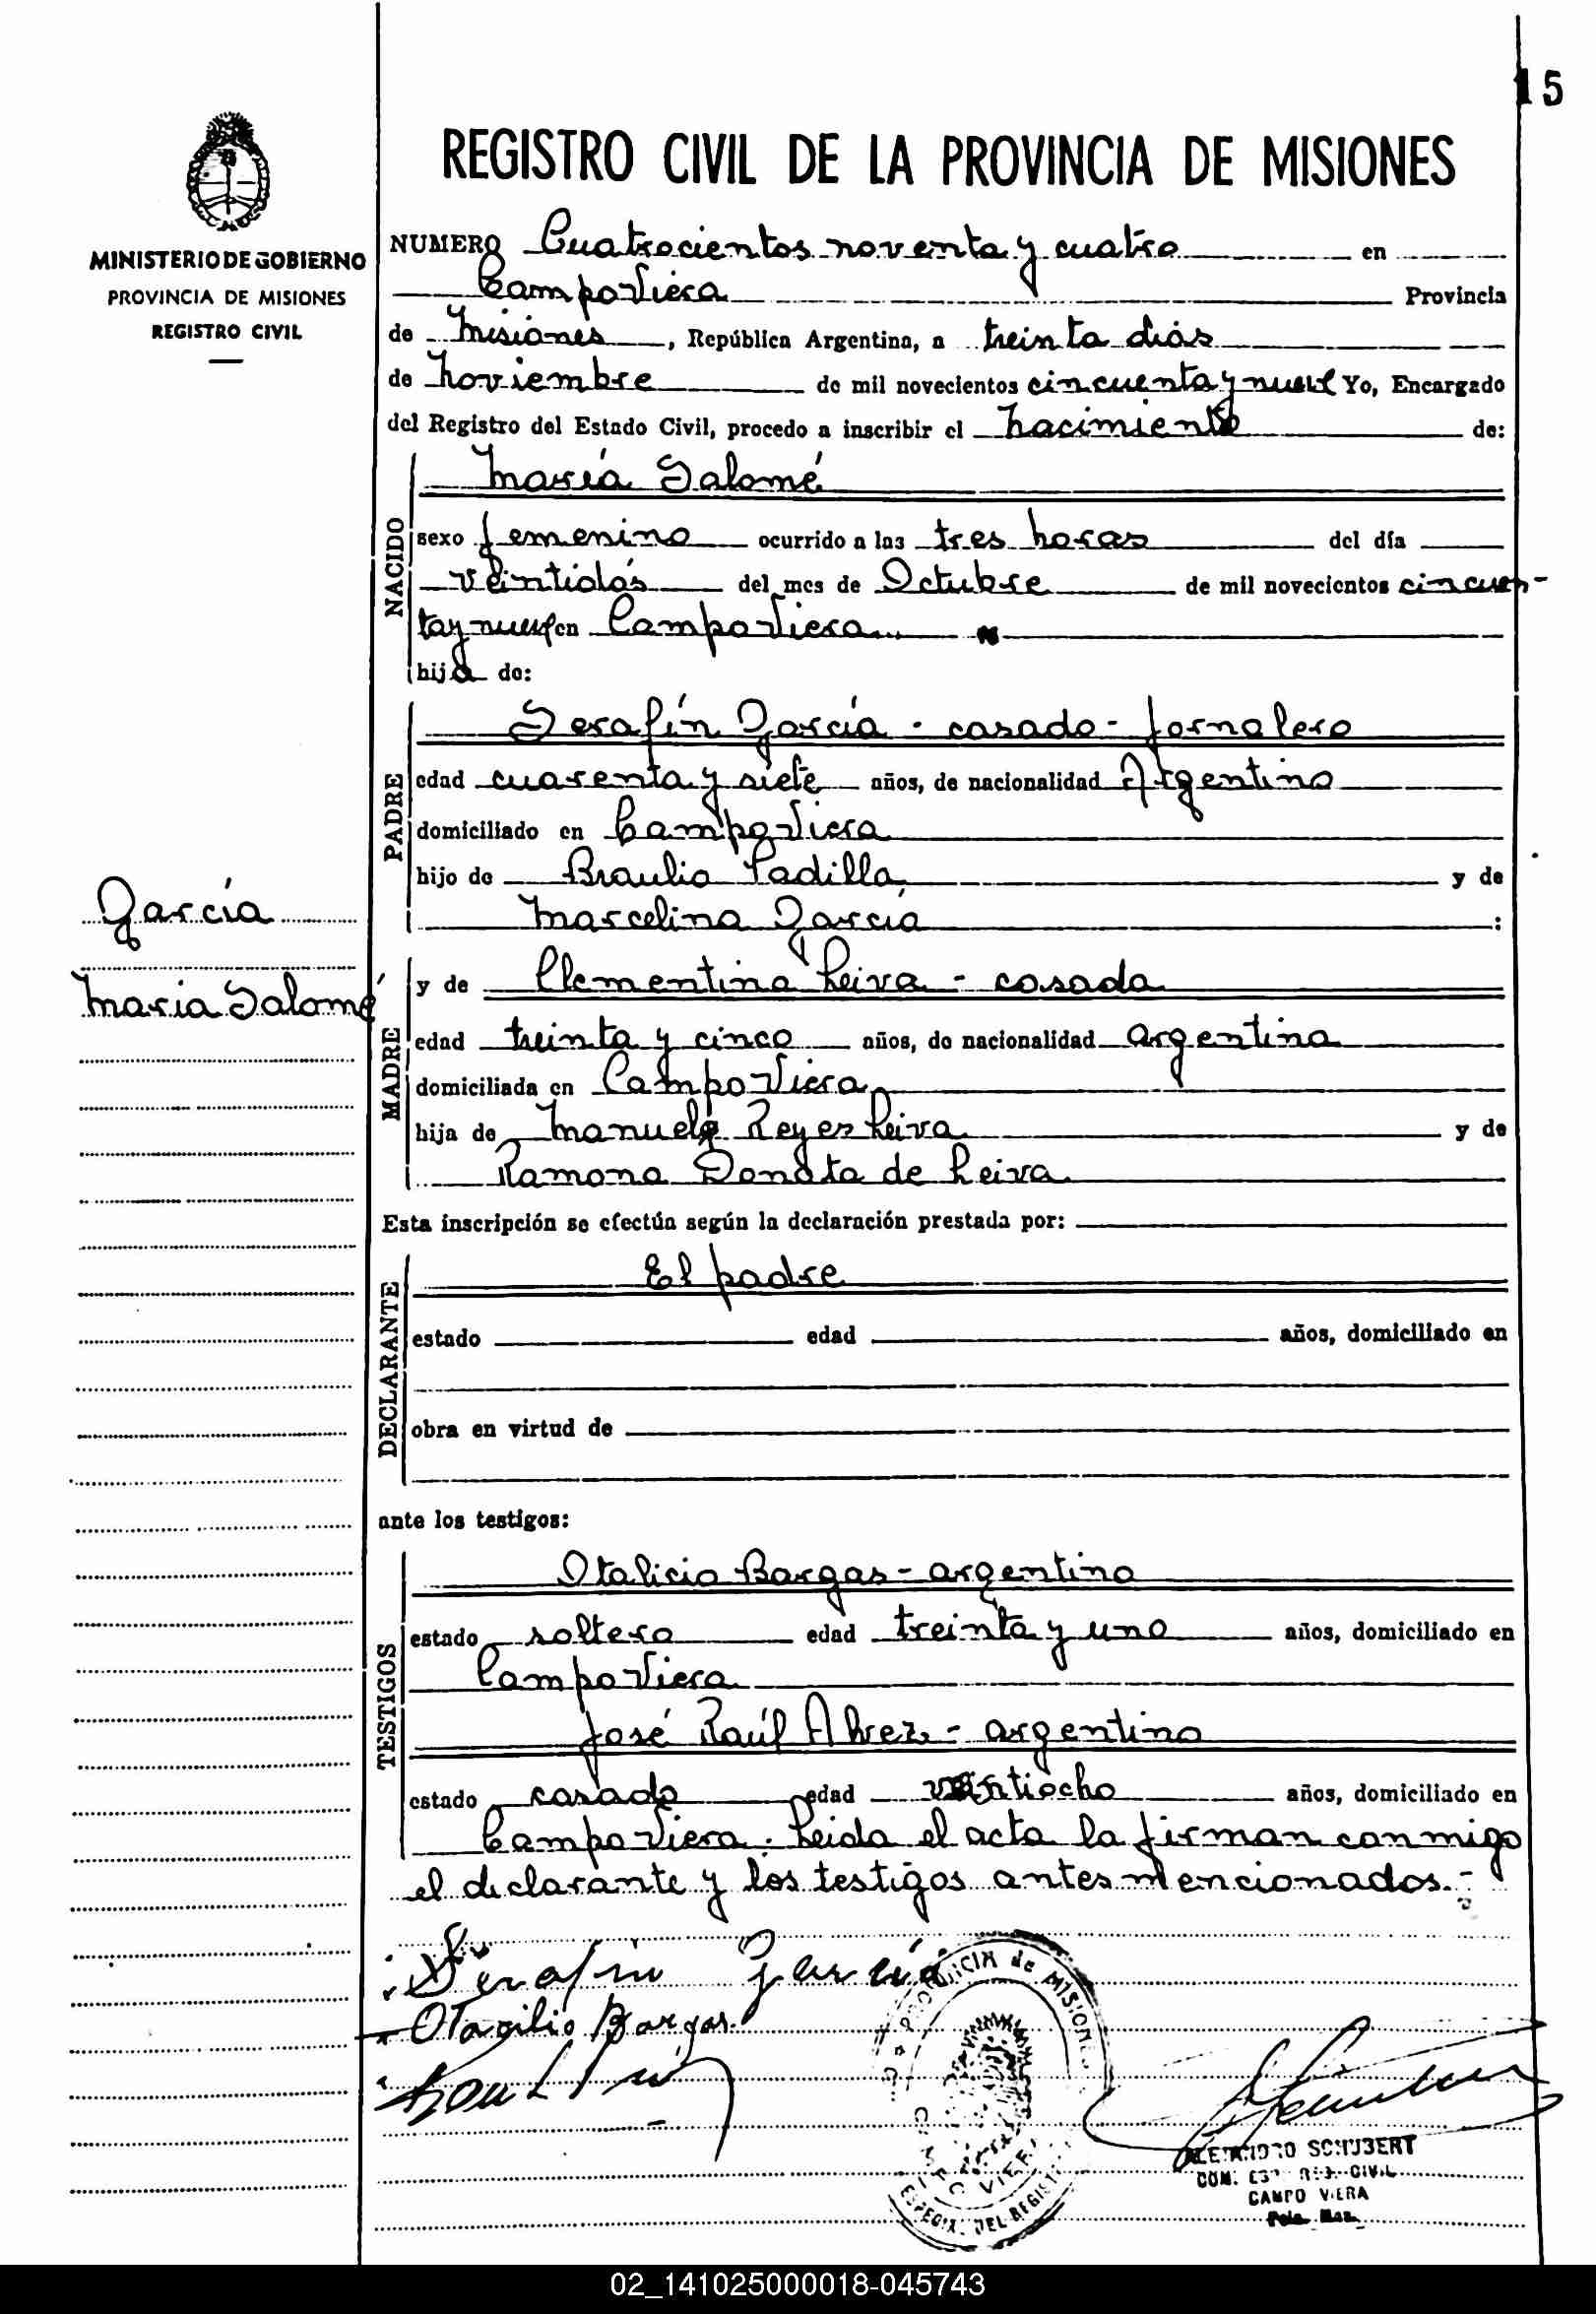 15
REGISTRO CIVIL DE LA PROVINCIA DE MISIONES
MINISTERIO DE GOBIERNO
PROVINCIA DE MISIONES
REGISTRO CIVIL
NUMERO Cuatrocientos noventa y cuatro en
Campo Viera Provincia
de Misiones, República Argentina, a treinta días
de Noviembre de mil novecientos cincuenta y nueve Yo, Encargado
del Registro del Estado Civil, procedo a inscribir el Nacimiento de:
NACIDO
María Salomé
sexo femenino ocurrido a las tres horas del día
veintidós del mes de Octubre de mil novecientos cincuen-
ta y nueve en Campo Viera
hija de:
PADRE
Serafín García - casado - Jornalero
edad cuarenta y siete años, de nacionalidad Argentino
domiciliado en Campo Viera
hijo de Braulio Padilla y de
Marcelina García
García
María Salomé
MADRE
y de Clementina Leiva - casada
edad treinta y cinco años, de nacionalidad argentina
domiciliada en Campo Viera
hija de Manuel Reyes Leiva y de
Ramona Donata de Leiva
Esta inscripción se efectúa según la declaración prestada por:
DECLARANTE
El padre
estado edad años, domiciliado en
obra en virtud de
ante los testigos:
TESTIGOS
Otalicio Bargas - argentino
estado soltero edad treinta y uno años, domiciliado en
Campo Viera
José Raúl Alvez - argentino
estado casado edad veintiocho años, domiciliado en
Campo Viera. Leida el acta la firman conmigo
el declarante y los testigos antes mencionados.-
Serafin Garcia
Otacilio Bargas
PROVINCIA de MISIONES
CAMPO VIERA
DEL REGISTRO
ALEJANDRO SCHUBERT
CAMPO VIERA
02_141025000018-045743